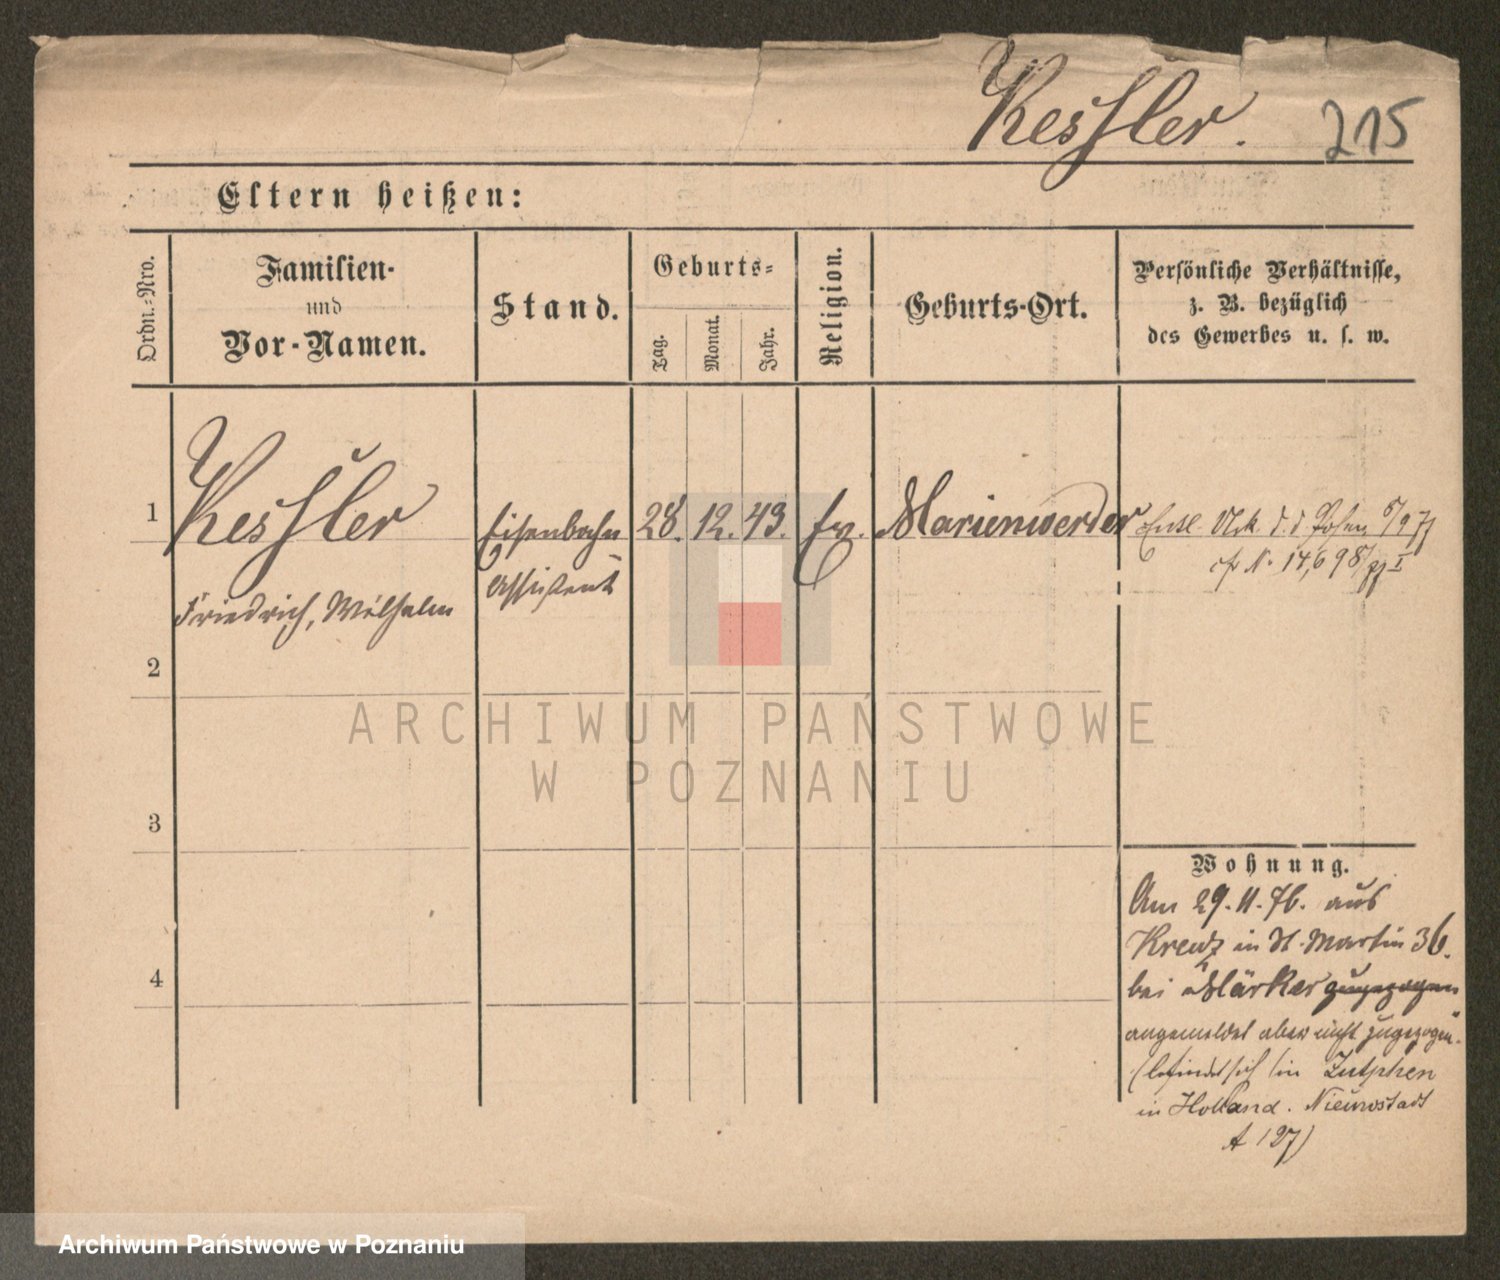 Kessler. 215
Eltern heißen:
Ordn.-Nro.
Familien-
und
Vor-Namen.
Stand.
Geburts-
Tag.
Monat.
Jahr.
Religion.
Geburts-Ort.
Persönliche Verhältnisse,
z. B. bezüglich
des Gewerbes u. s. w.
1 Kessler Eisenbahn 28. 12. 43. Ev. Marienwerder Entl. Urk. d. d. Posen 5/9 77
assistent cfr N. 14,698/77 I
Friedrich, Wilhelm
2
3
4
Wohnung.
Am 29.11.76. aus
Kreuz in St. Martin 36.
bei Märker zugezogen
angemeldet aber nicht zugezogen.
(befindet sich in Zutphen
in Holland. Nieuwstadt
A 127)
ARCHIWUM PAŃSTWOWE
W POZNANIU
Archiwum Państwowe w Poznaniu